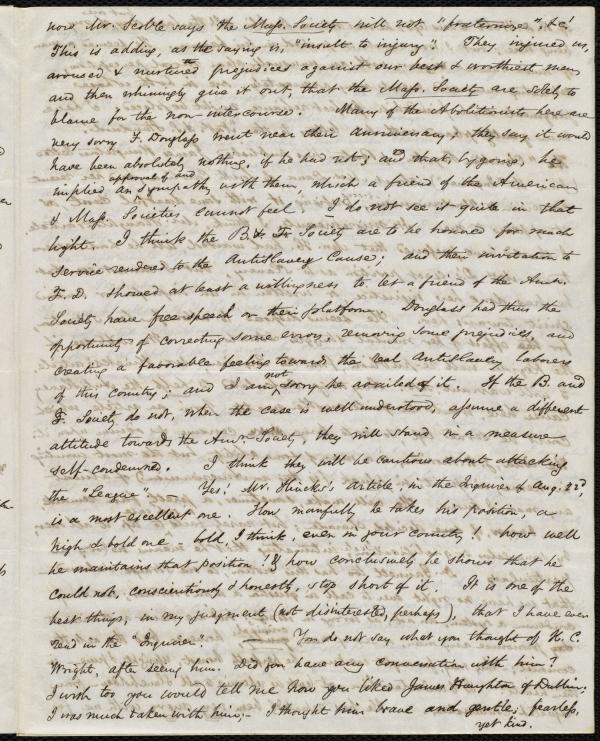 now Mr. Scoble says the Mass. Society will not "fraternize", &c!
This is adding, as the saying is, "insult to injury"! They injured us,
aroused & nurtured the prejudices against our best & worthiest men,
and then whiningly give it out, that the Mass. Society are solely to
blame for the non-intercourse. Many of the Abolitionists here are
very sorry F. Douglass went near their anniversary; they say it would
have been absolutely nothing, if he had not; and that, by going, he
implied an approval of and sympathy with them, which a friend of the American
& Mass. Societies cannot feel. I do not see it quite in that
light. I think the B. & Fr. Society are to be honored for much
service rendered to the Antislavery Cause; and their invitation to
F. D. showed at least a willingness to let a friend of the Amn.
Society have free speech on their platform. Douglass had thus the
opportunity of correcting some errors, removing some prejudices, and
creating a favorable feeling towards the real Antislavery laborers
of this country; and I am not sorry he availed of it. If the B. and
F. Society do not, when the case is well understood, assume a different
attitude towards the Amn. Society, they will stand in a measure
self-condemned. I think they will be cautious about attacking
the "League". — Yes! Mr. Hincks's article, in the Inquirer of Aug. 22d,
is a most excellent one. How manfully he takes his position, a
high & bold one – bold, I think, even in your country! how well
he maintains that position!! & how conclusively he shows that he
could not, conscientiously & honestly, stop short of it. It is one of the
best things, in my judgment (not disinterested, perhaps), that I have ever
read in the "Inquirer". — You do not say what you thought of H. C.
Wright, after seeing him. Did you have any conversation with him?
I wish too you would tell me how you liked James Haughton of Dublin.
I was much taken with him; – I thought him brave and gentle, fearless,
yet kind.